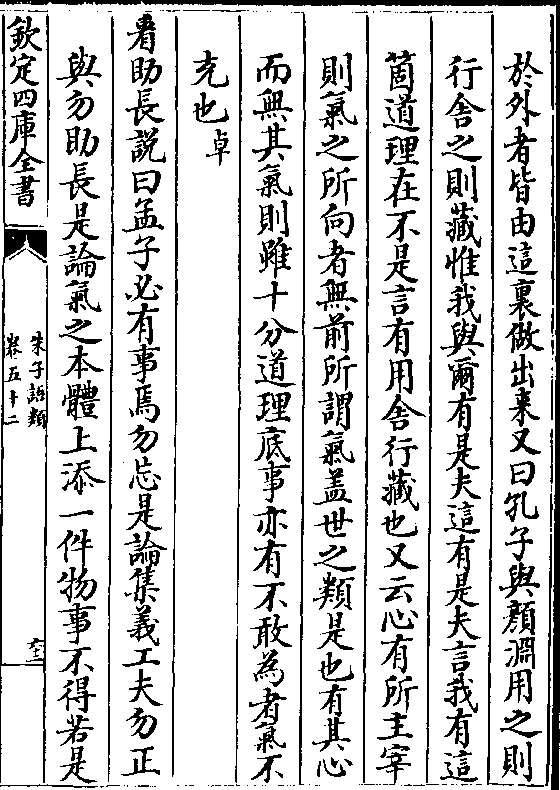 於外者皆由這裏做出来又曰孔子與顔淵用之則
行舍之則藏惟我與爾有是夫這有是夫言我有這
箇道理在不是言有用舍行藏也又云心有所主宰
則氣之所向者無前所謂氣盖世之類是也有其心
而無其氣則雖十分道理底事亦有不敢為者氣不
充也卓
看助長説曰孟子必有事焉勿忘是論集義工夫勿正
與勿助長是論氣之本體上添一件物事不得若是
欽定四庫全書
朱子語類
卷五十二